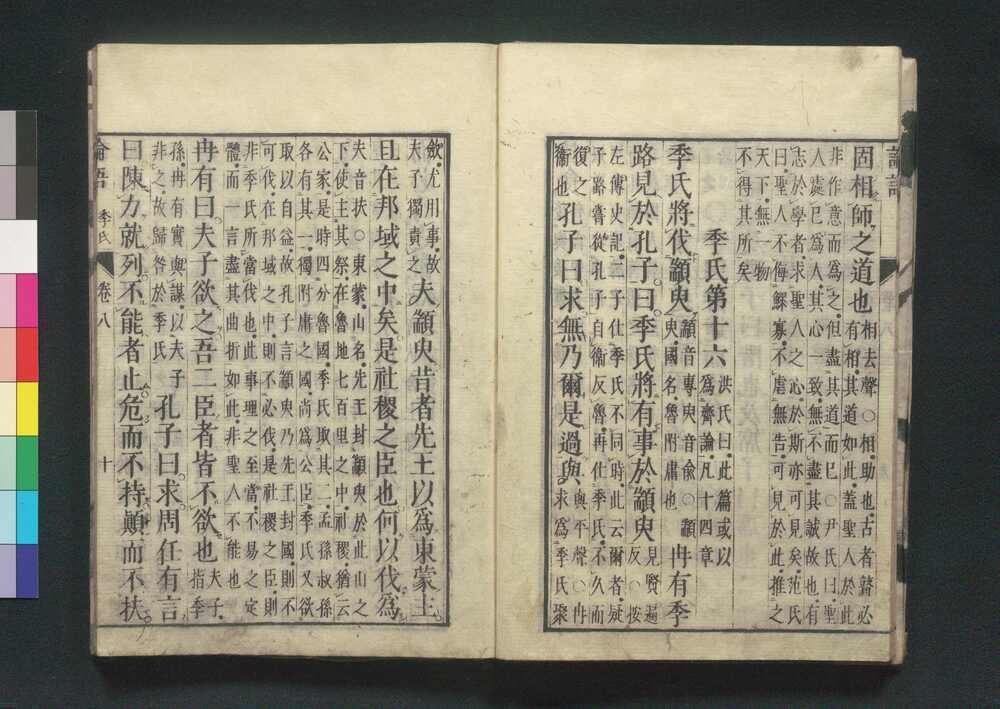 論語
固相師之道也相去聲○相助也古者瞽必
有相其道如此蓋聖人於此
非作意而爲之但盡其道而已○尹氏曰聖
人處已爲人其心一致無不盡其誠故也有
志於學者求聖人之心於斯亦可見矣范氏
曰聖人不侮鰥寡不虐無告可見於此推之
天下無一物
不得其所矣
季氏第十六洪氏曰此篇或以
爲齊論凡十四章
季氏將伐顓臾顓音專臾音俞○顓
臾國名魯附庸也冉有季
路見於孔子曰季氏將有事於顓臾見賢遍
反○按
左傳史記二子仕季氏不同時此云爾者疑
子路嘗從孔子衞反魯再仕季氏不久而
復之
衞也孔子曰求無乃爾是過與與平聲○冉
求爲季氏聚
斂尤用事故
夫子獨責之夫顓臾昔者先王以爲東蒙主
且在邦域之中矣是社稷之臣也何以伐爲
夫音扶○東蒙山名先王封顓臾於此山之
下使主其祭在魯地七百里之中社稷猶云
公家是時四分魯國季氏取其二孟孫叔孫
各有其一獨附庸之國尚爲公臣季氏又欲
取以自益故孔子言顓臾乃先王封國則不
可伐在邦域之中則不必伐是社稷之臣則
非季氏所當伐也此事理之至當不易之定
體而一言盡其曲折如此非聖人不能也
冉有曰夫子欲之吾二臣者皆不欲也夫子
指季
孫冉有實與謀以夫子
非之故歸咎於季氏孔子曰求周任有言
曰陳力就列不能者止危而不持顛而不扶
論語 季氏 卷八 十